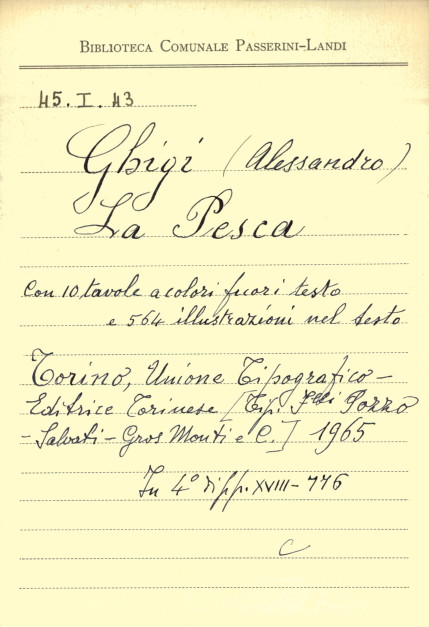 BIBLIOTECA COMUNALE PASSERINI-LANDI
45. I. 43
Ghigi (Alessandro)
La Pesca
Con 10 tavole a colori fuori testo
e 564 illustrazioni nel testo
Torino, Unione Tipografico-
Editrice Torinese [Tip. F.lli Pozzo
- Salvati - Gros Monti e C.] 1965
In 4° di pp. XVIII - 776
C